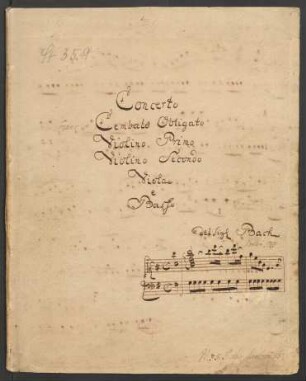 Concerto
Cembalo Obligato
Violino Primo
Violino Secondo
Viola
e
Basso
Bach